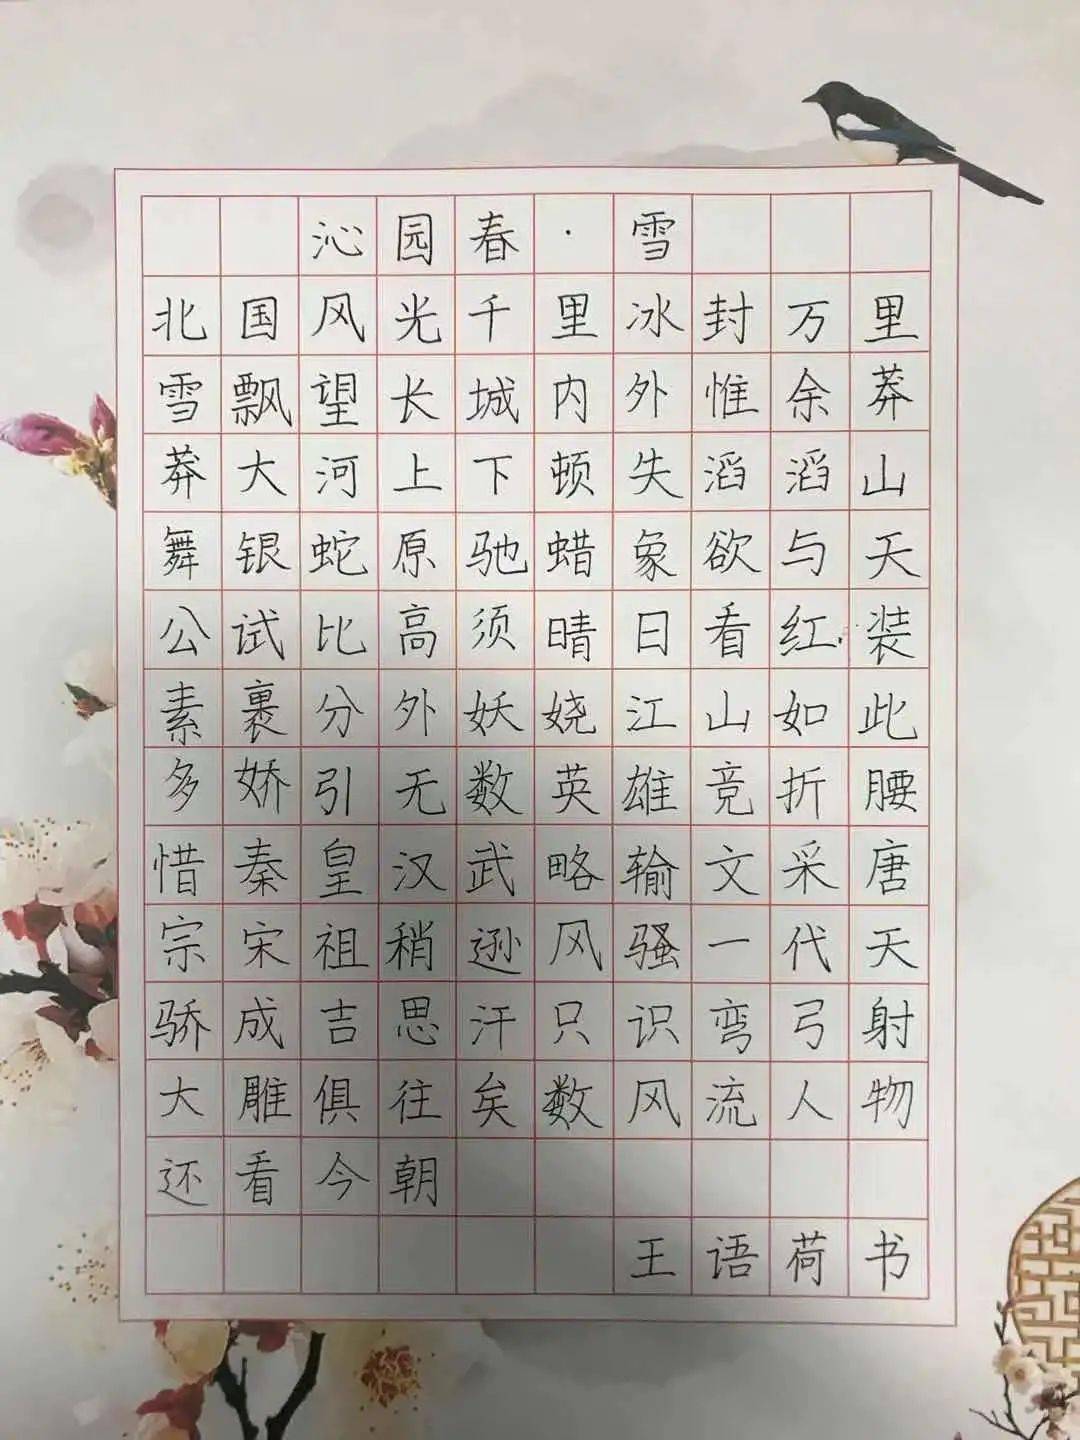 沁园春·雪
北国风光千里冰封万里
雪飘望长城内外惟余莽
莽大河上下顿失滔滔山
舞银蛇原驰蜡象欲与天
公试比高须晴日看红装
素裹分外妖娆江山如此
多娇引无数英雄竞折腰
惜秦皇汉武略输文采唐
宗宋祖稍逊风骚一代天
骄成吉思汗只识弯弓射
大雕俱往矣数风流人物
还看今朝
王语荷书